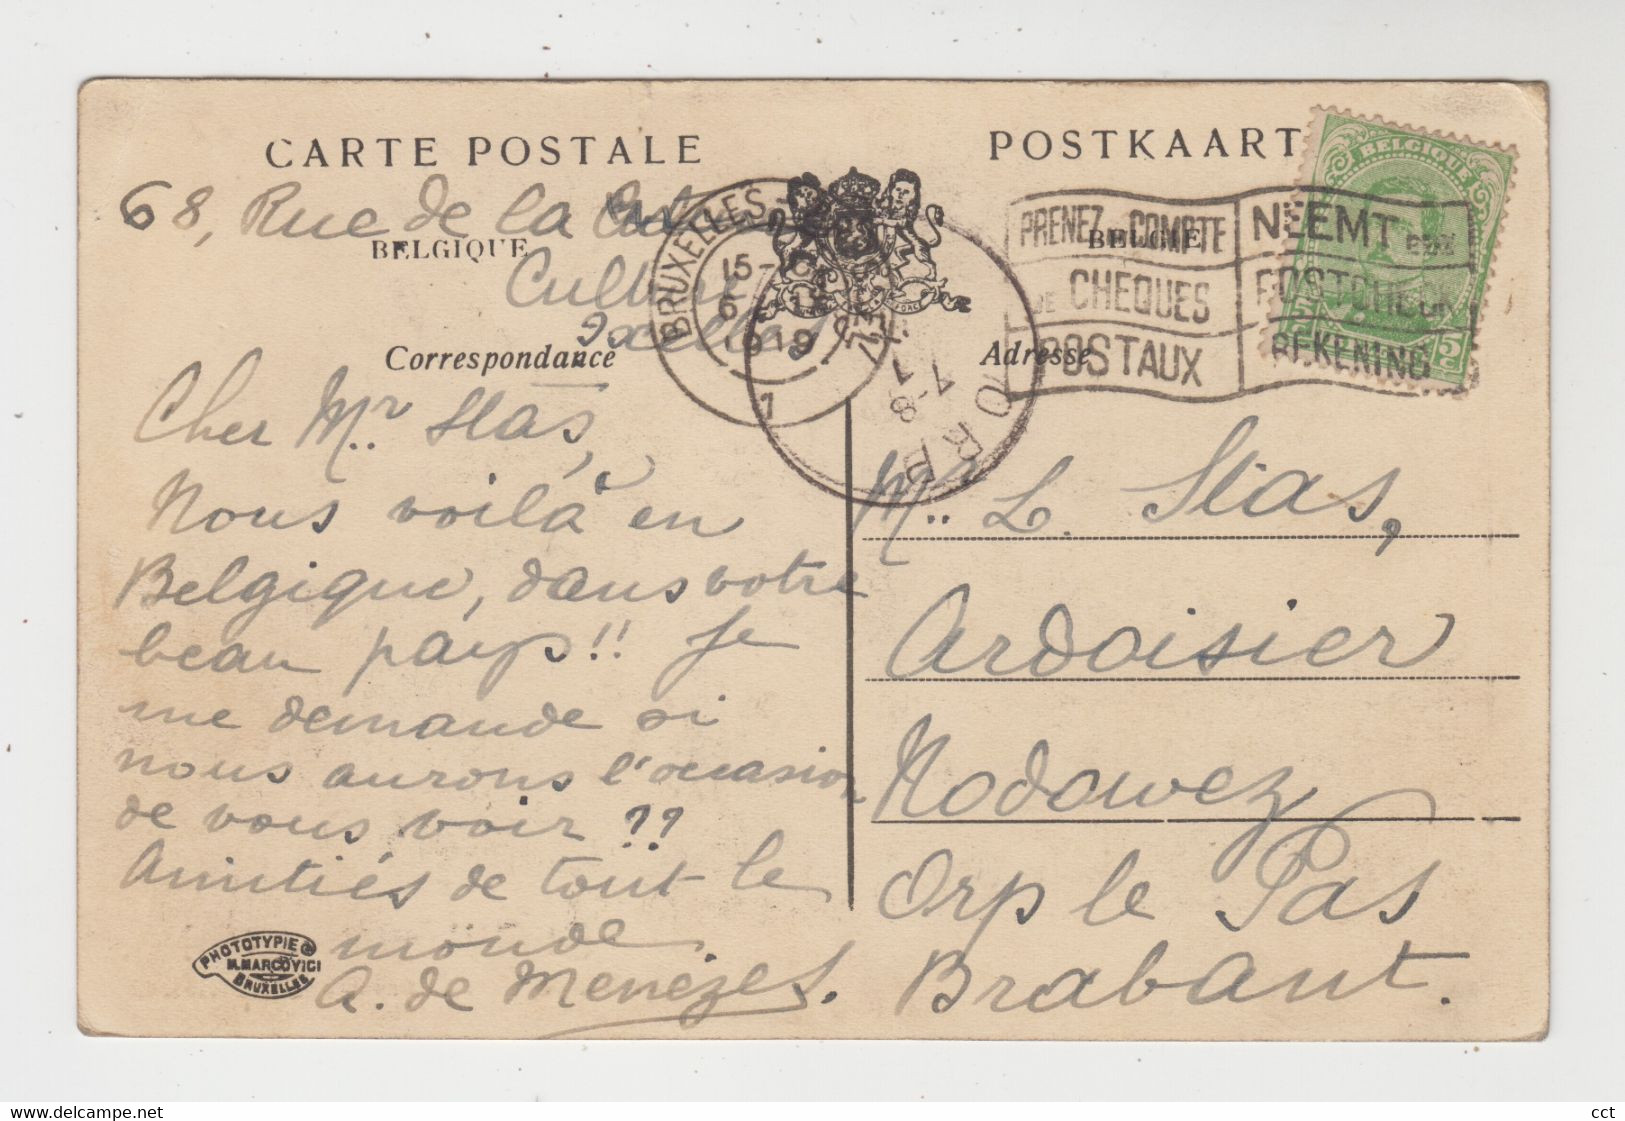 CARTE POSTALE
POSTKAART
BELGIQUE
BELGIE
Correspondance
Adresse
68, Rue de la
Culture
Ixelles
Cher Mr. Stas,
Nous voilà en
Belgique, dans votre
beau pays!! Je
me demande si
nous aurons l'occasion
de vous voir ??
Amitiés de tout le
monde
A. de Menezes.
PHOTOTYPIE
M. MARCOVICI
BRUXELLES
BRUXELLES
15-
6
1919
1
ORP
7-8
PRENEZ UN COMPTE
DE CHEQUES
POSTAUX
NEEMT EEN
POSTCHECK
REKENING
BELGIQUE
5
Mr. L. Stas,
Ardoisier
Nodowez
Orp le Pas
Brabant.
www.delcampe.net
cct